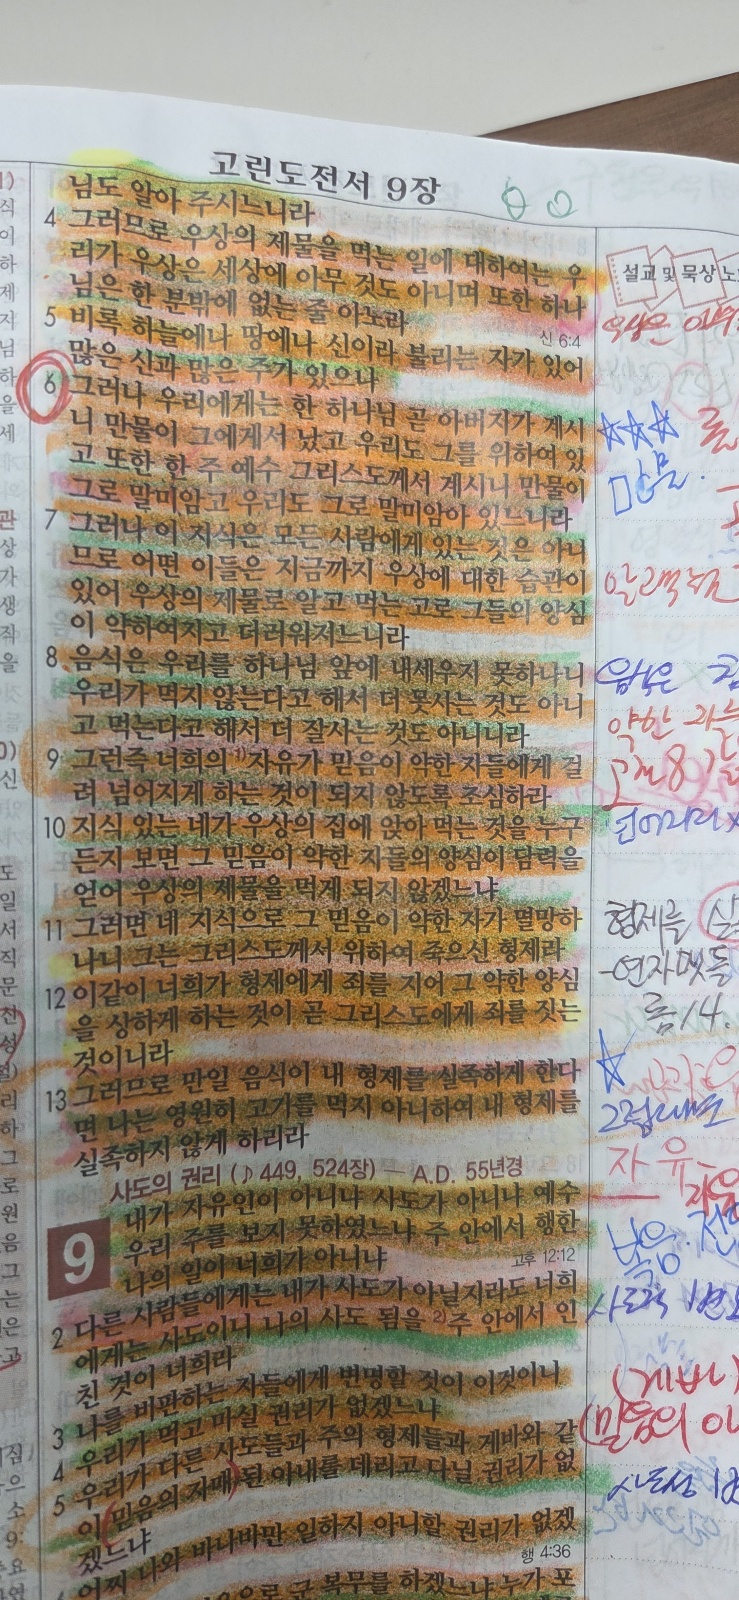 고린도전서 9장
님도 알아 주시느니라
4 그러므로 우상의 제물을 먹는 일에 대하여는 우
리가 우상은 세상에 아무 것도 아니며 또한 하나
님은 한 분밖에 없는 줄 아노라
신 6:4
5 비록 하늘에나 땅에나 신이라 불리는 자가 있어
많은 신과 많은 주가 있으나
6 그러나 우리에게는 한 하나님 곧 아버지가 계시
니 만물이 그에게서 났고 우리도 그를 위하여 있
고 또한 한 주 예수 그리스도께서 계시니 만물이
그로 말미암고 우리도 그로 말미암아 있느니라
7 그러나 이 지식은 모든 사람에게 있는 것은 아니
므로 어떤 이들은 지금까지 우상에 대한 습관이
있어 우상의 제물로 알고 먹는 고로 그들의 양심
이 약하여지고 더러워지느니라
8 음식은 우리를 하나님 앞에 내세우지 못하나니
우리가 먹지 않는다고 해서 더 못사는 것도 아니
고 먹는다고 해서 더 잘사는 것도 아니니라
9 그런즉 너희의 1)자유가 믿음이 약한 자들에게 걸
려 넘어지게 하는 것이 되지 않도록 조심하라
10 지식 있는 네가 우상의 집에 앉아 먹는 것을 누구
든지 보면 그 믿음이 약한 자들의 양심이 담력을
얻어 우상의 제물을 먹게 되지 않겠느냐
11 그러면 네 지식으로 그 믿음이 약한 자가 멸망하
나니 그는 그리스도께서 위하여 죽으신 형제라
12 이같이 너희가 형제에게 죄를 지어 그 약한 양심
을 상하게 하는 것이 곧 그리스도에게 죄를 짓는
것이니라
13 그러므로 만일 음식이 내 형제를 실족하게 한다
면 나는 영원히 고기를 먹지 아니하여 내 형제를
실족하지 않게 하리라
사도의 권리 (♪ 449, 524장) — A.D. 55년경
9 내가 자유인이 아니냐 사도가 아니냐 예수
우리 주를 보지 못하였느냐 주 안에서 행한
나의 일이 너희가 아니냐
고후 12:12
2 다른 사람들에게는 내가 사도가 아닐지라도 너희
에게는 사도이니 나의 사도 됨을 2)주 안에서 인
친 것이 너희라
3 나를 비판하는 자들에게 변명할 것이 이것이니
4 우리가 먹고 마실 권리가 없겠느냐
5 우리가 다른 사도들과 주의 형제들과 게바와 같
이 믿음의 자매 된 아내를 데리고 다닐 권리가 없
겠느냐
행 4:36
어찌 나와 바나바만 일하지 아니할 권리가 없겠
군 복무를 하겠느냐 누가 포
설교 및 묵상 노
우상은
음식은
약한
고전8
형제를
-연자맷돌
롬14.
그럼에도
자유
복음
사도적
(게바)
(믿음의 아
사도성